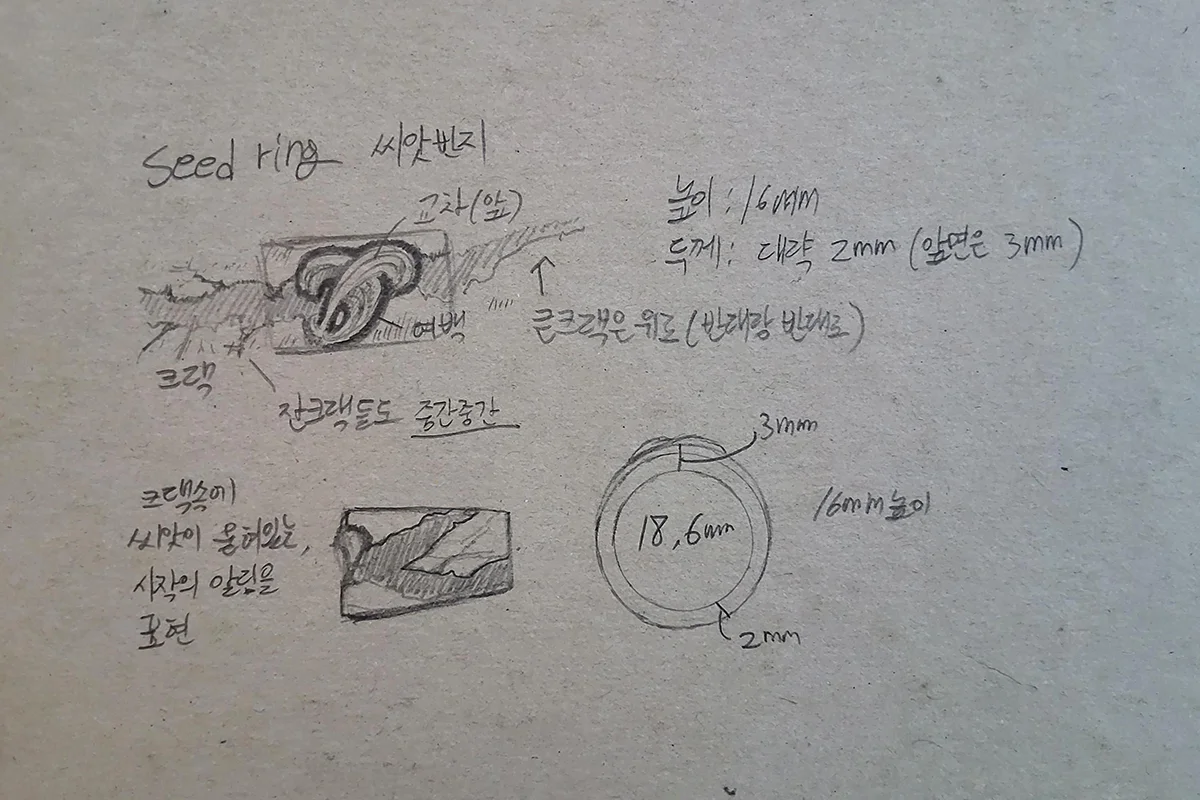 Seed ring 씨앗반지
교차(앞)
높이 : 16mm
두께 : 대략 2mm (앞면은 3mm)
여백
큰크랙은 위로 (반대랑 반대로)
크랙
잔크랙들도 중간중간
3mm
크랙속에
씨앗이 움터있는,
시작의 알림을
표현
18,6mm
16mm높이
2mm